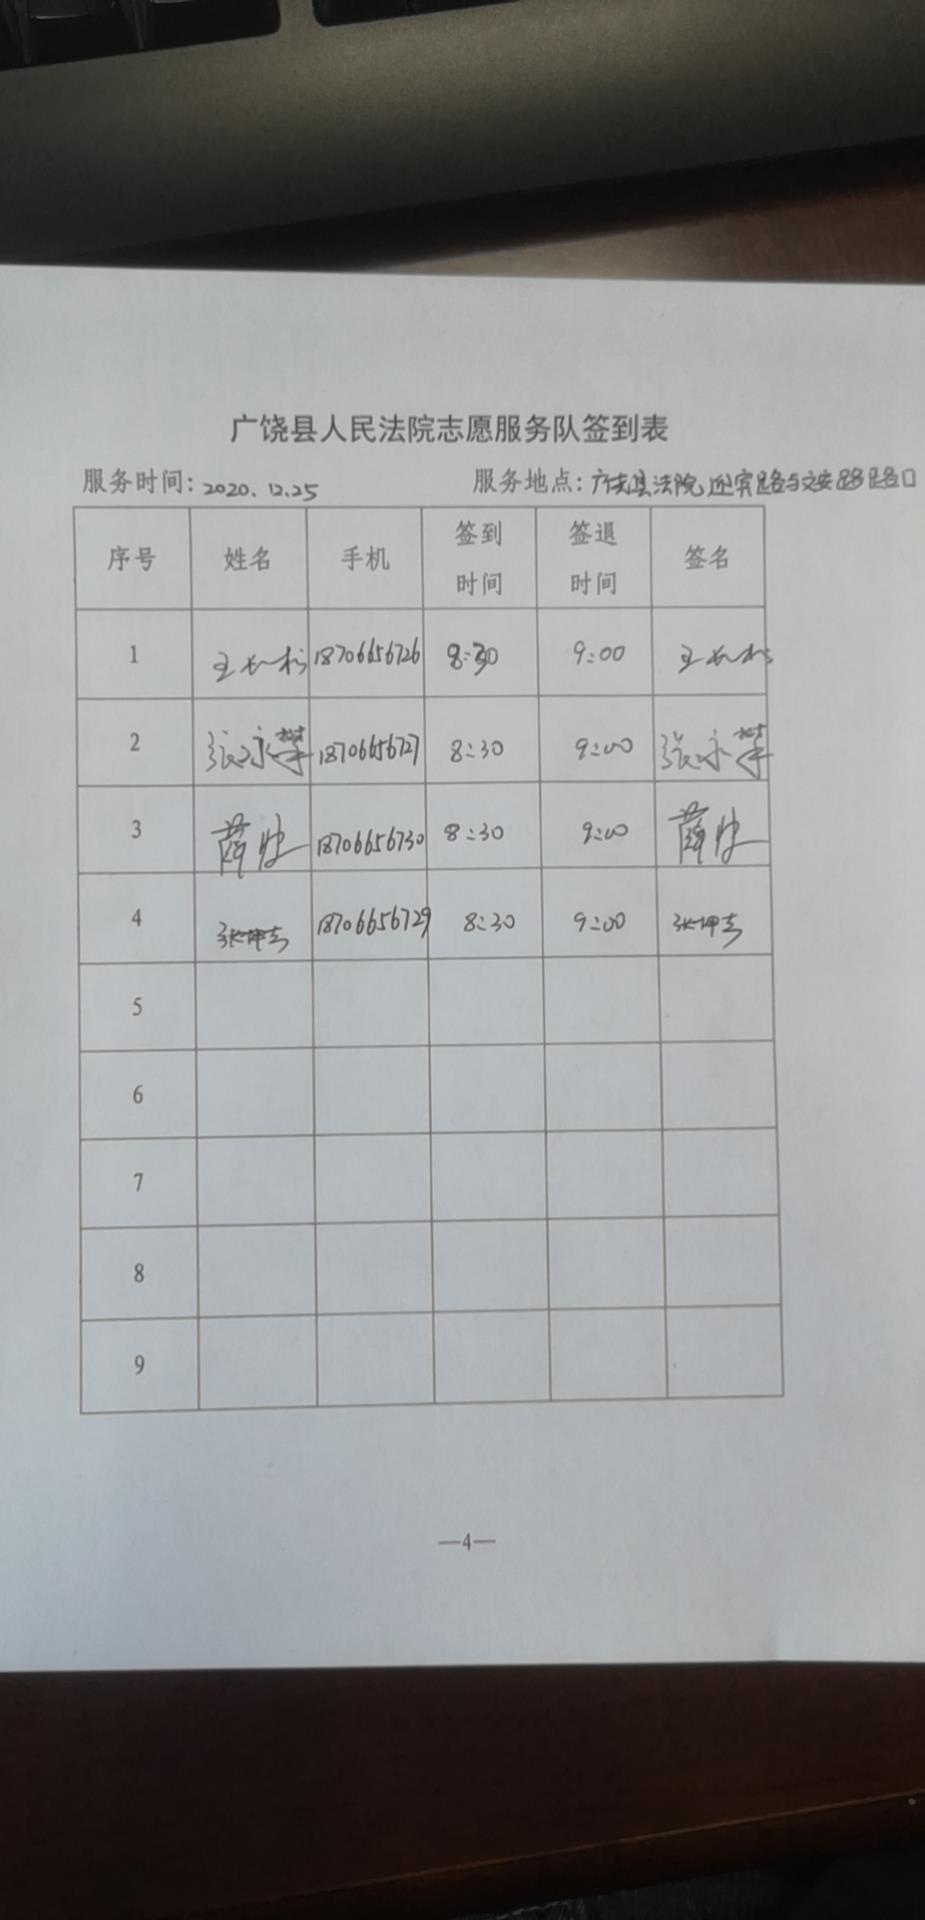 广饶县人民法院志愿服务队签到表
服务时间：2020.12.25 服务地点：广饶县法院，迎宾路与文安路路口
序号 姓名 手机 签到时间 签退时间 签名
1 18706656726 8:30 9:00
2 张永攀 18706656727 8:30 9:00 张永攀
3 薛 18706656730 8:30 9:00 薛
4 张坤 18706656729 8:30 9:00 张坤
5
6
7
8
9
—4—